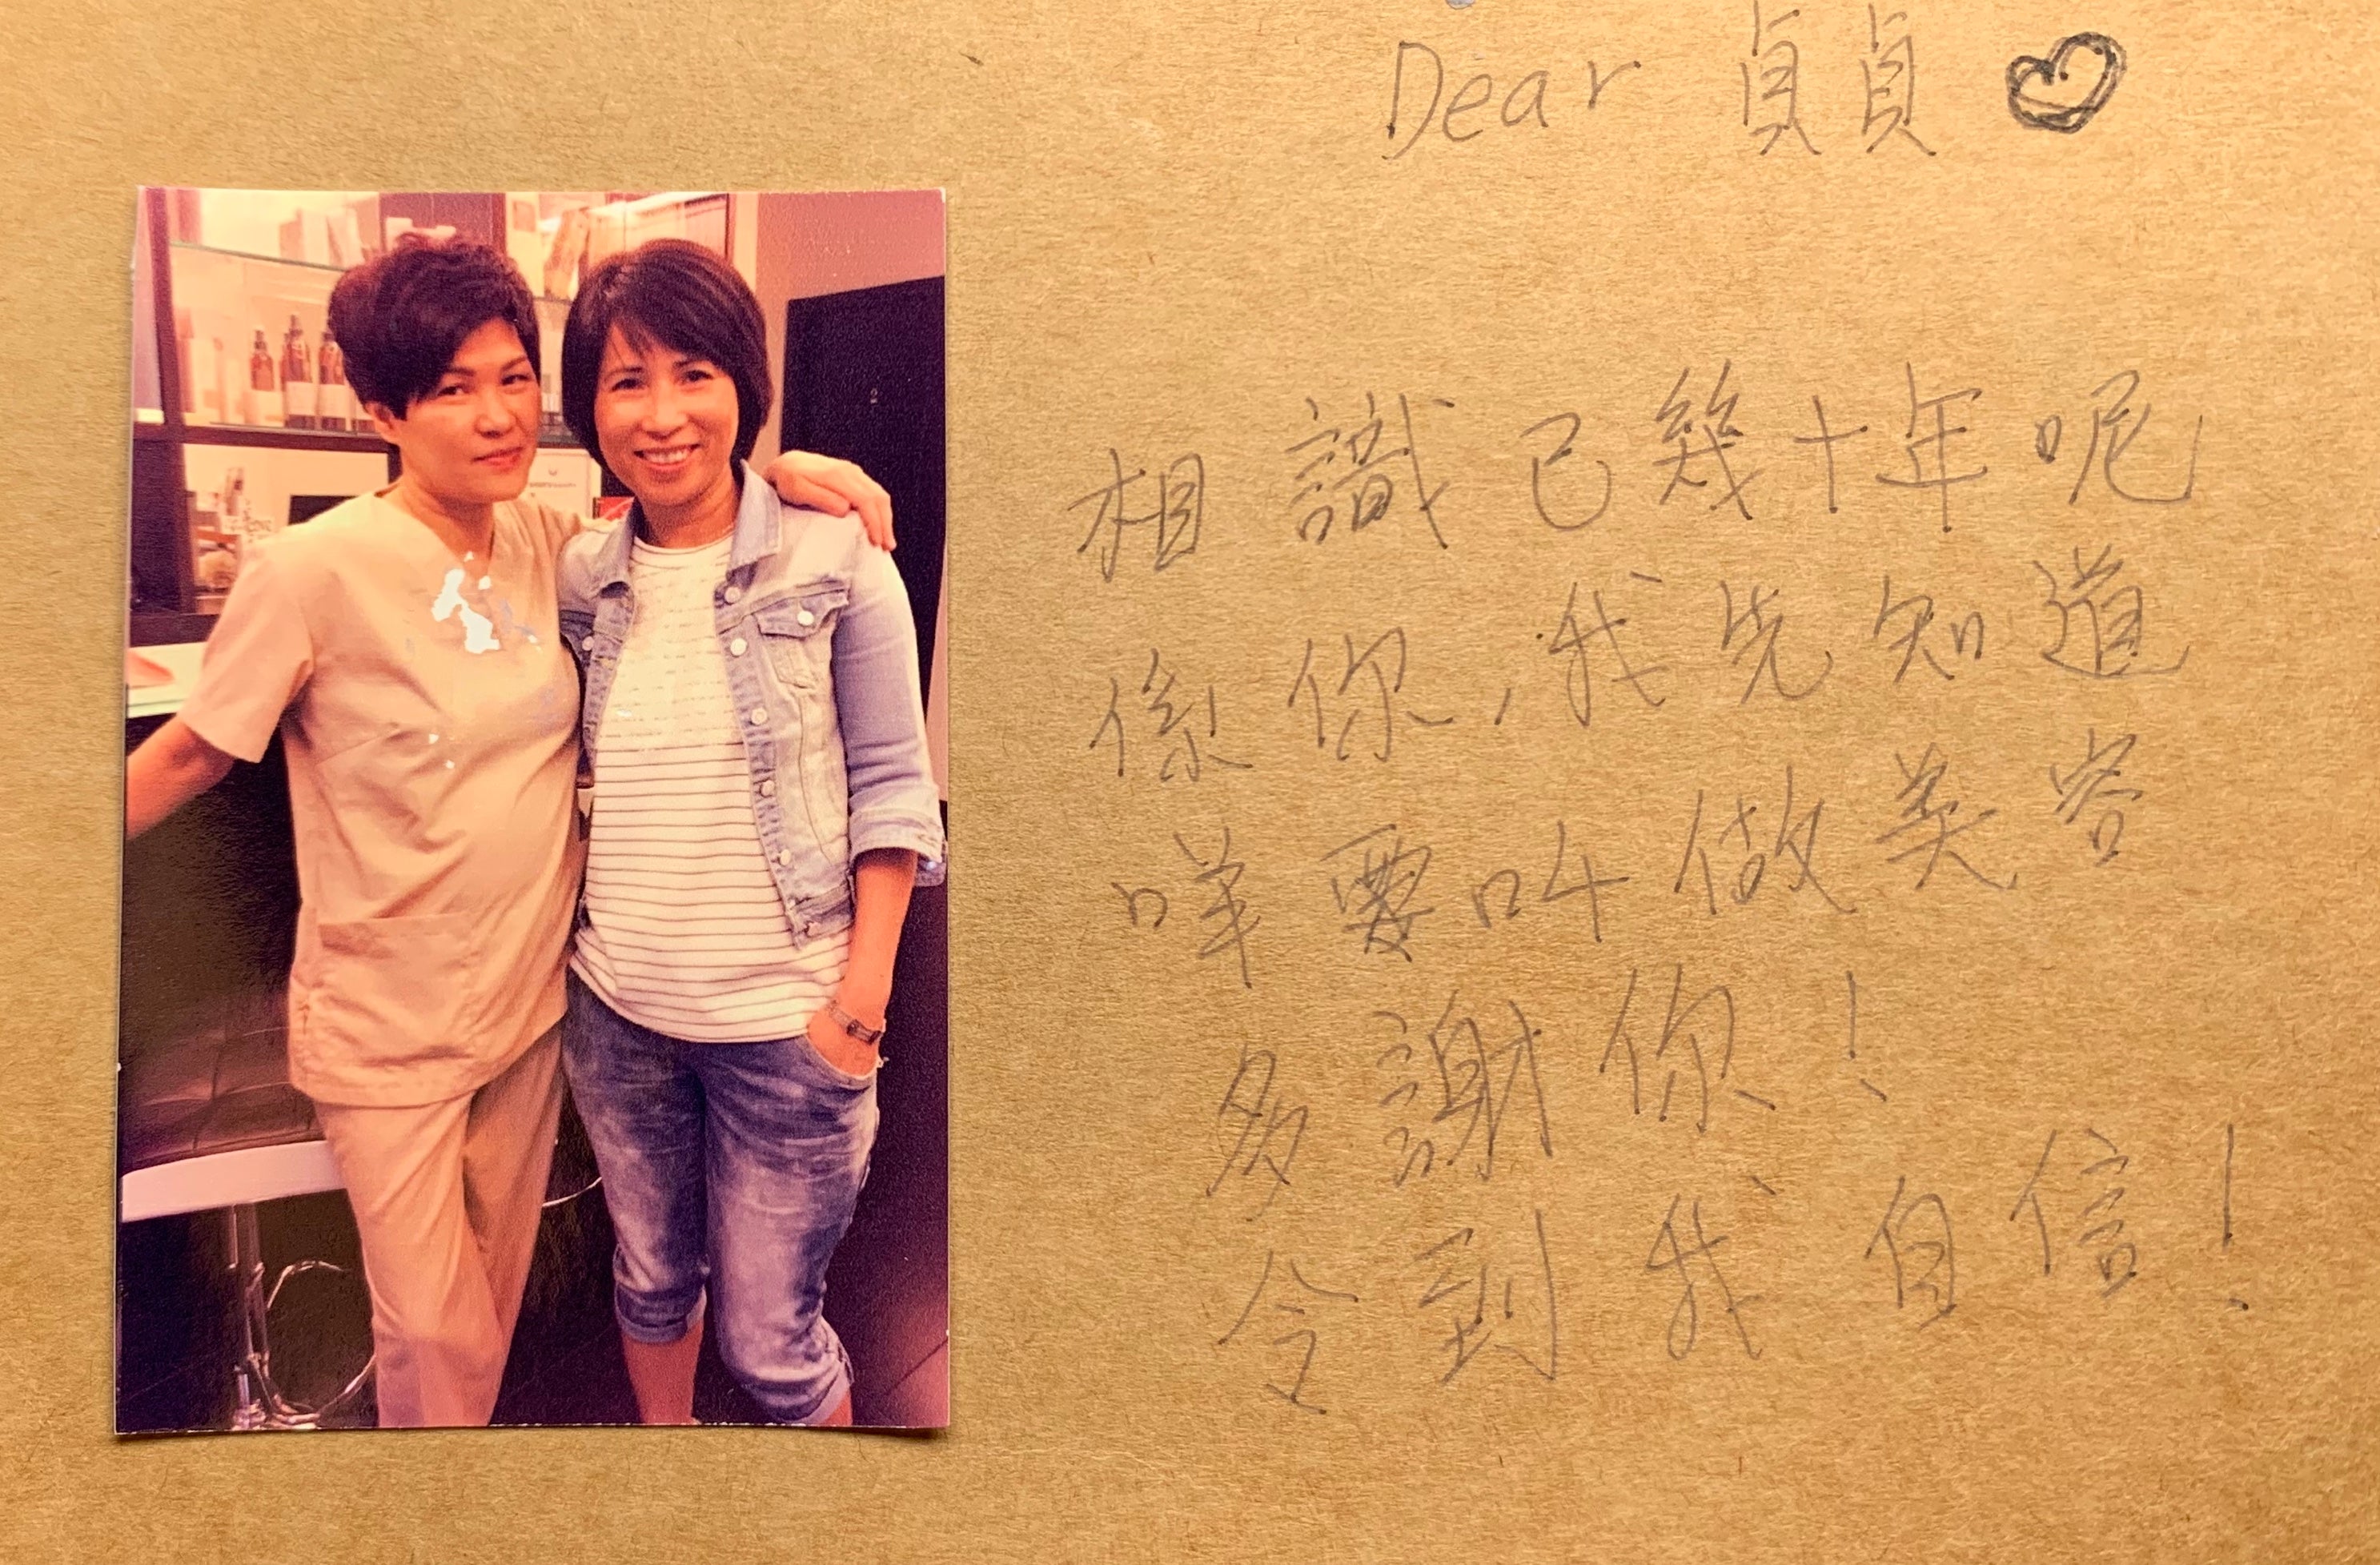 Dear 貞貞
相識已幾十年呢
係你,我先知道
咩要叫做美容
多謝你!
令到我自信!